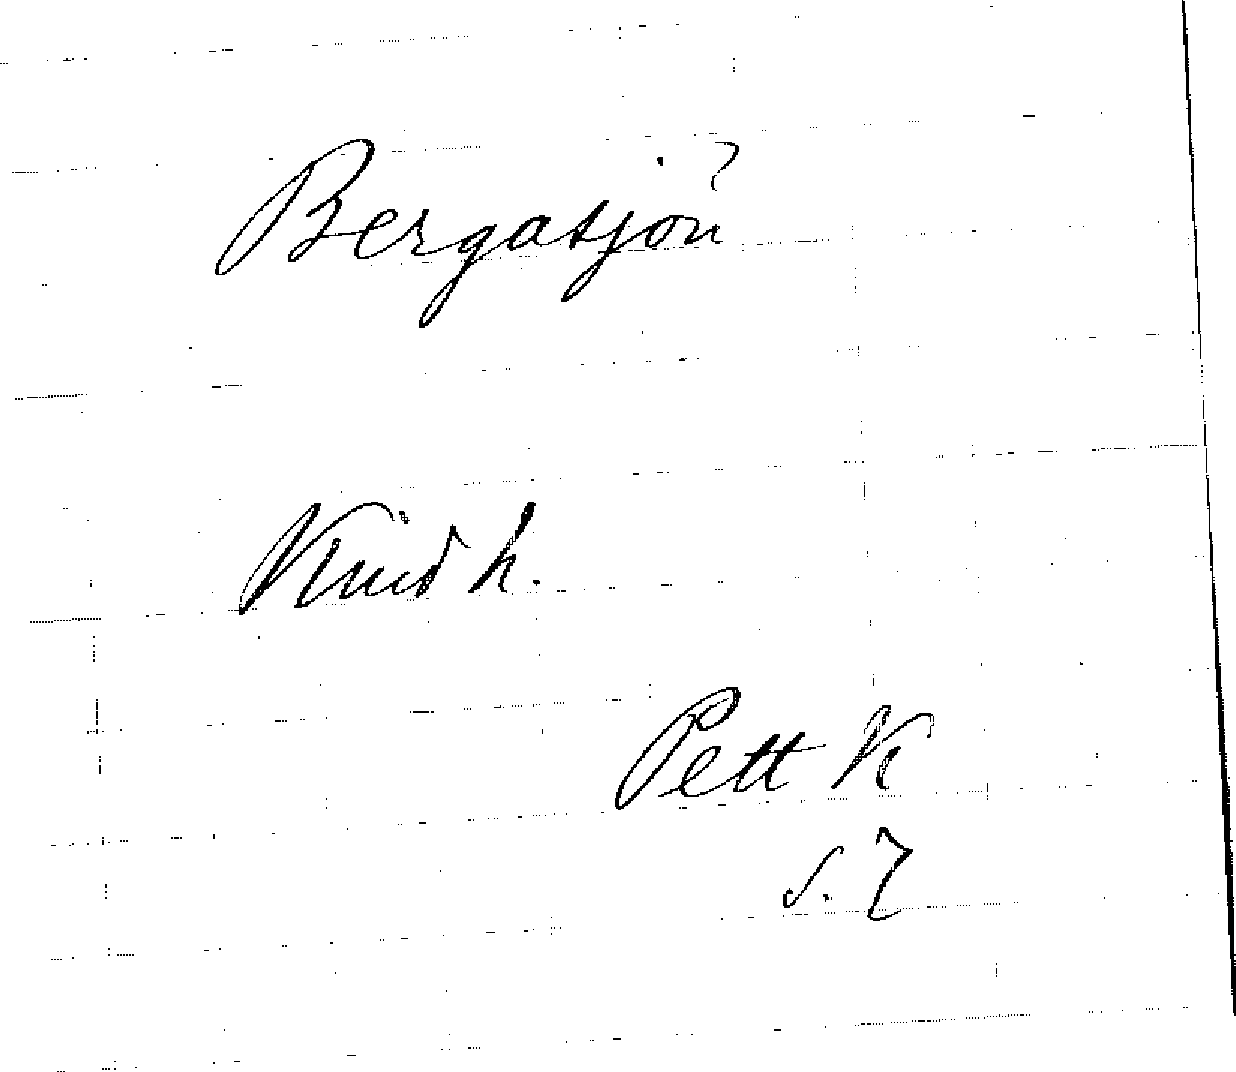 Bergatjön
Knud h.
Pett K
s. 7